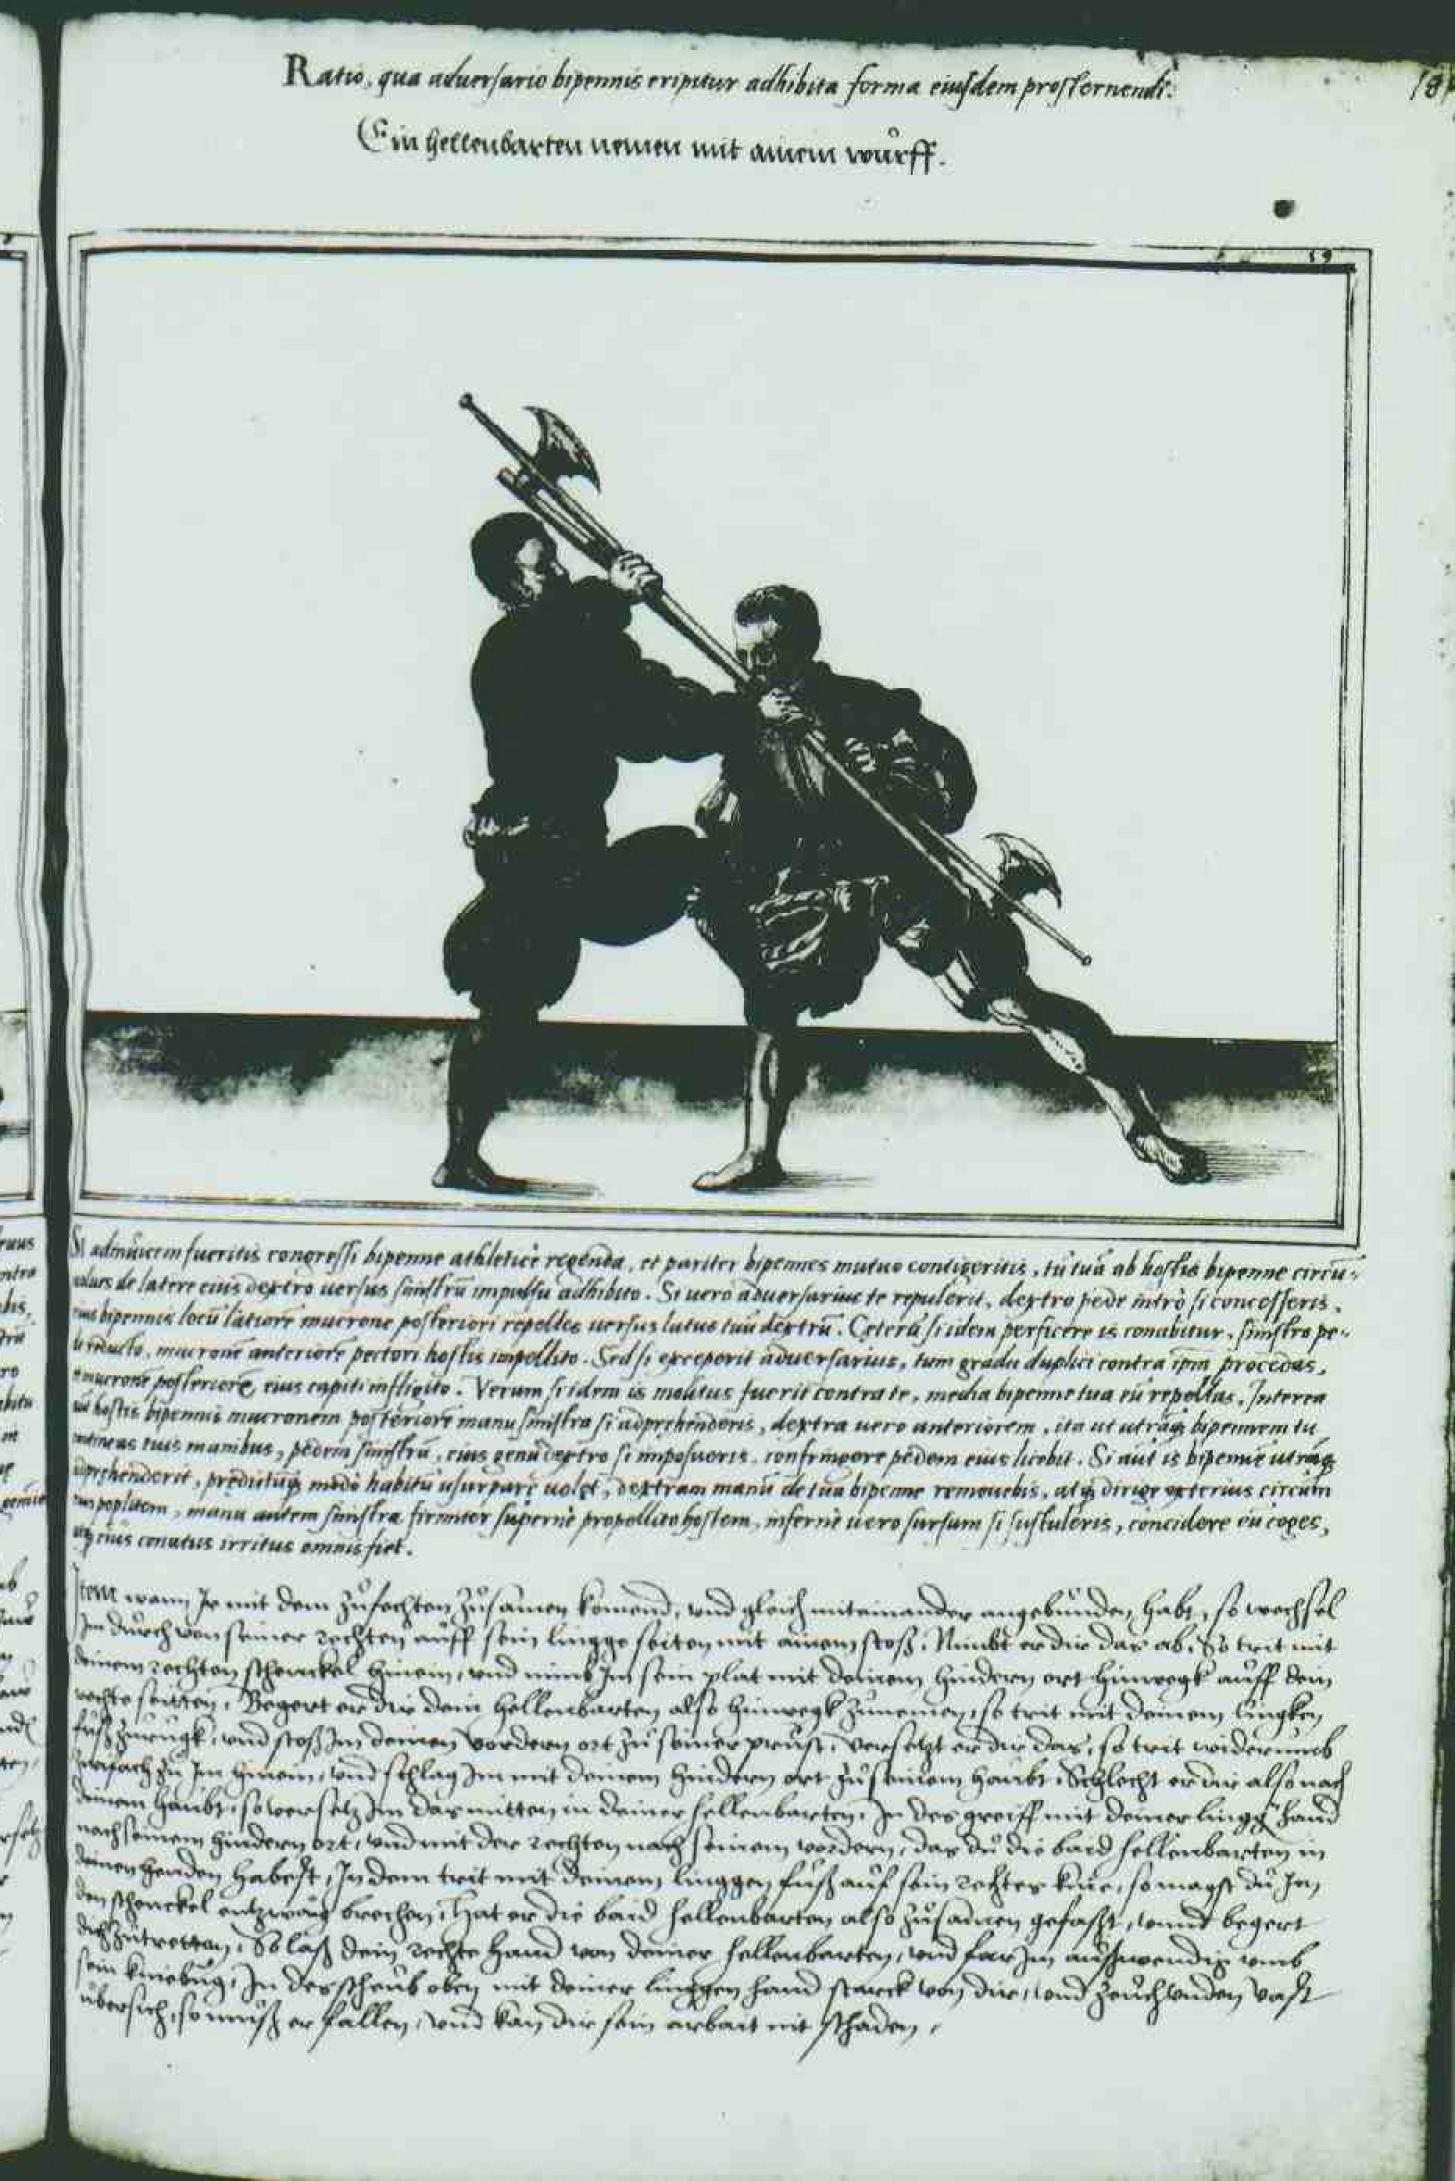 Ratio, qua adversario bipennis eripitur adhibita forma eiusdem prosternendi.
Ein hellenbarten nemen mit ainem wůrff.
59
Si adinuicem fueritis congressi bipenne athletice regenda, et pariter bipennes mutuo contigeritis, tu tuã ab hostis bipenne circũ-
de latere eius dextro uersus sinistrũ impulsu adhibito. Si uero aduersarius te repulerit, dextro pede intrò si concesseris,
bipennis locũ latiorẽ mucrone posteriori repelles uersus latus tuũ dextrũ. Ceterũ si idem perficere is conabitur, sinistro pe-
reducto, mucronẽ anteriorẽ pectori hostis impellito. Sed si exceperit aduersarius, tum gradu duplici contra ipm̃ procedas,
mucronẽ posteriorẽ eius capiti infligito. Verum si idem is molitus fuerit contra te, media bipenne tua eũ repellas. Interea
hostis bipennis mucronem posteriorẽ manu sinistra si adprehenderis, dextra uero anteriorem, ita ut utrãq bipennem tu
contineas tuis manibus, pedem sinistrũ, eius genu dextro si imposueris, confringere pedem eius licebit. Si aut is bipennẽ utrãq
adprehenderit, predictuq modo habitũ usurpare uolet, dextram manũ de tua bipenne remouebis, atq dirige exterius circum
poplitem, manu autem sinistra firmiter supernè propellito hostem, infernè uero sursum si sustuleris, concidere eũ coges,
eius conatus irritus omnis fiet.
Item wann Ir mit dem zůfechten zůsamen komend, vnd gleich mitainander angebůnden habt, so wechsel
Im důrch von seiner rechten auff sein lingge seiten mit ainem stoß, Nimbt er dir das ab, So trit mit
deinem rechten schenckel hinein, vnd nimb Im sein plat mit deinem hindern ort hinwegk auff dein
rechte seitten, Begert er dir dein hellenbarten also hinwegk zůnemen, so trit mit deinem lingken
fůß zůrugk, vnd stoß Im deinen vordern ort zů seiner prust, versetzt er dir das, so trit widerumb
zwifach zů Im hinein, vnd schlag Im mit deinem hindern ort zů seinem haubt, Schlecht er dir also nach
deinem haubt, so versetz Im das mitten in deiner hellenbarten, In des greiff mit deiner lingg hand
nach seinem hindern ort, vnd mit der rechten nach seinem vordern, das dů die baid hellenbarten in
deinen henden habest, In dem trit mit deinem linggen fůß auf sein rechtes knie, so magst dů Im
den schenckel entzway brechen, Hat er die baid hellenbarten also zůsamen gefasst, vnnd begert
dich zůtretten, So laß dein rechte hand von deiner hellenbarten, vnd far Im auswendig vmb
sein kniebůg, In des scheub oben mit deiner linggen hand starck von dir, vnd zeuch vnden vast
übersich, so muß er fallen, vnd kan dir sein arbait nit schaden,